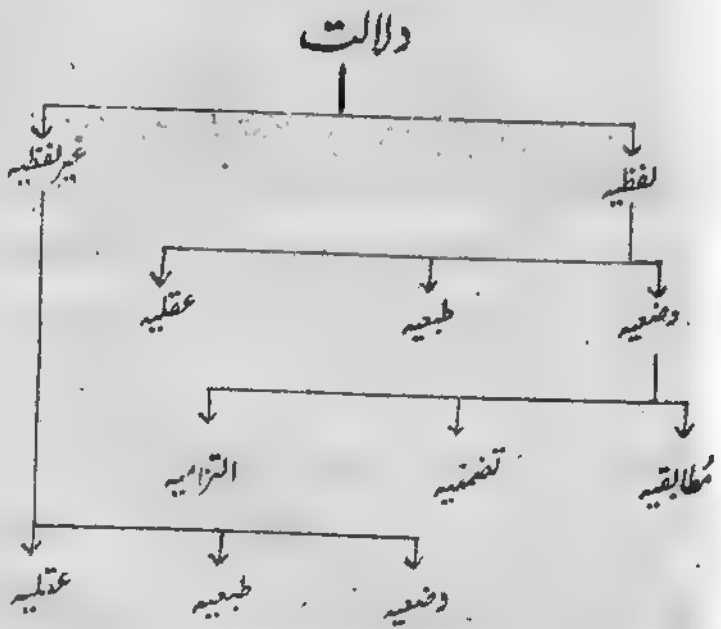 دلالت
لفظیہ غیر لفظیہ
وضعیہ طبعیہ عقلیہ
مُطابقیہ تضمنیہ التزامیہ
وضعیہ طبعیہ عقلیہ